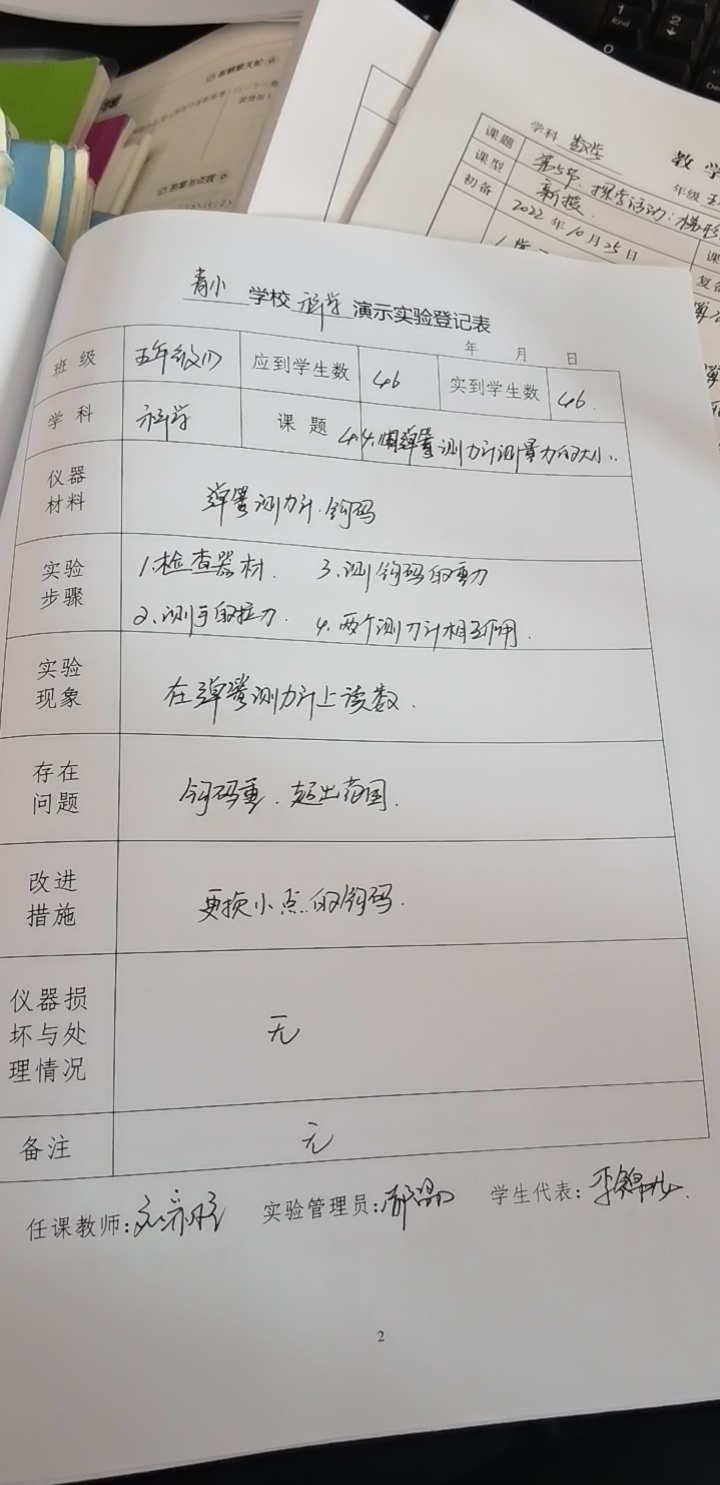 学科 数学
教学
年级 五
课题
第5节 探索活动：梯形
课型
新授
初备
2022年10月25日
青小 学校 科学 演示实验登记表
年 月 日
班级 五年级(1) 应到学生数 46 实到学生数 46.
学科 科学 课题 4.4.用弹簧测力计测量力的大小.
仪器材料 弹簧测力计.钩码
实验步骤 1.检查器材. 3.测钩码的重力
2.测手的拉力. 4.两个测力计相互作用.
实验现象 在弹簧测力计上读数.
存在问题 钩码重.超出范围.
改进措施 更换小点的钩码.
仪器损坏与处理情况 无
备注 无
任课教师: 实验管理员: 学生代表:
2